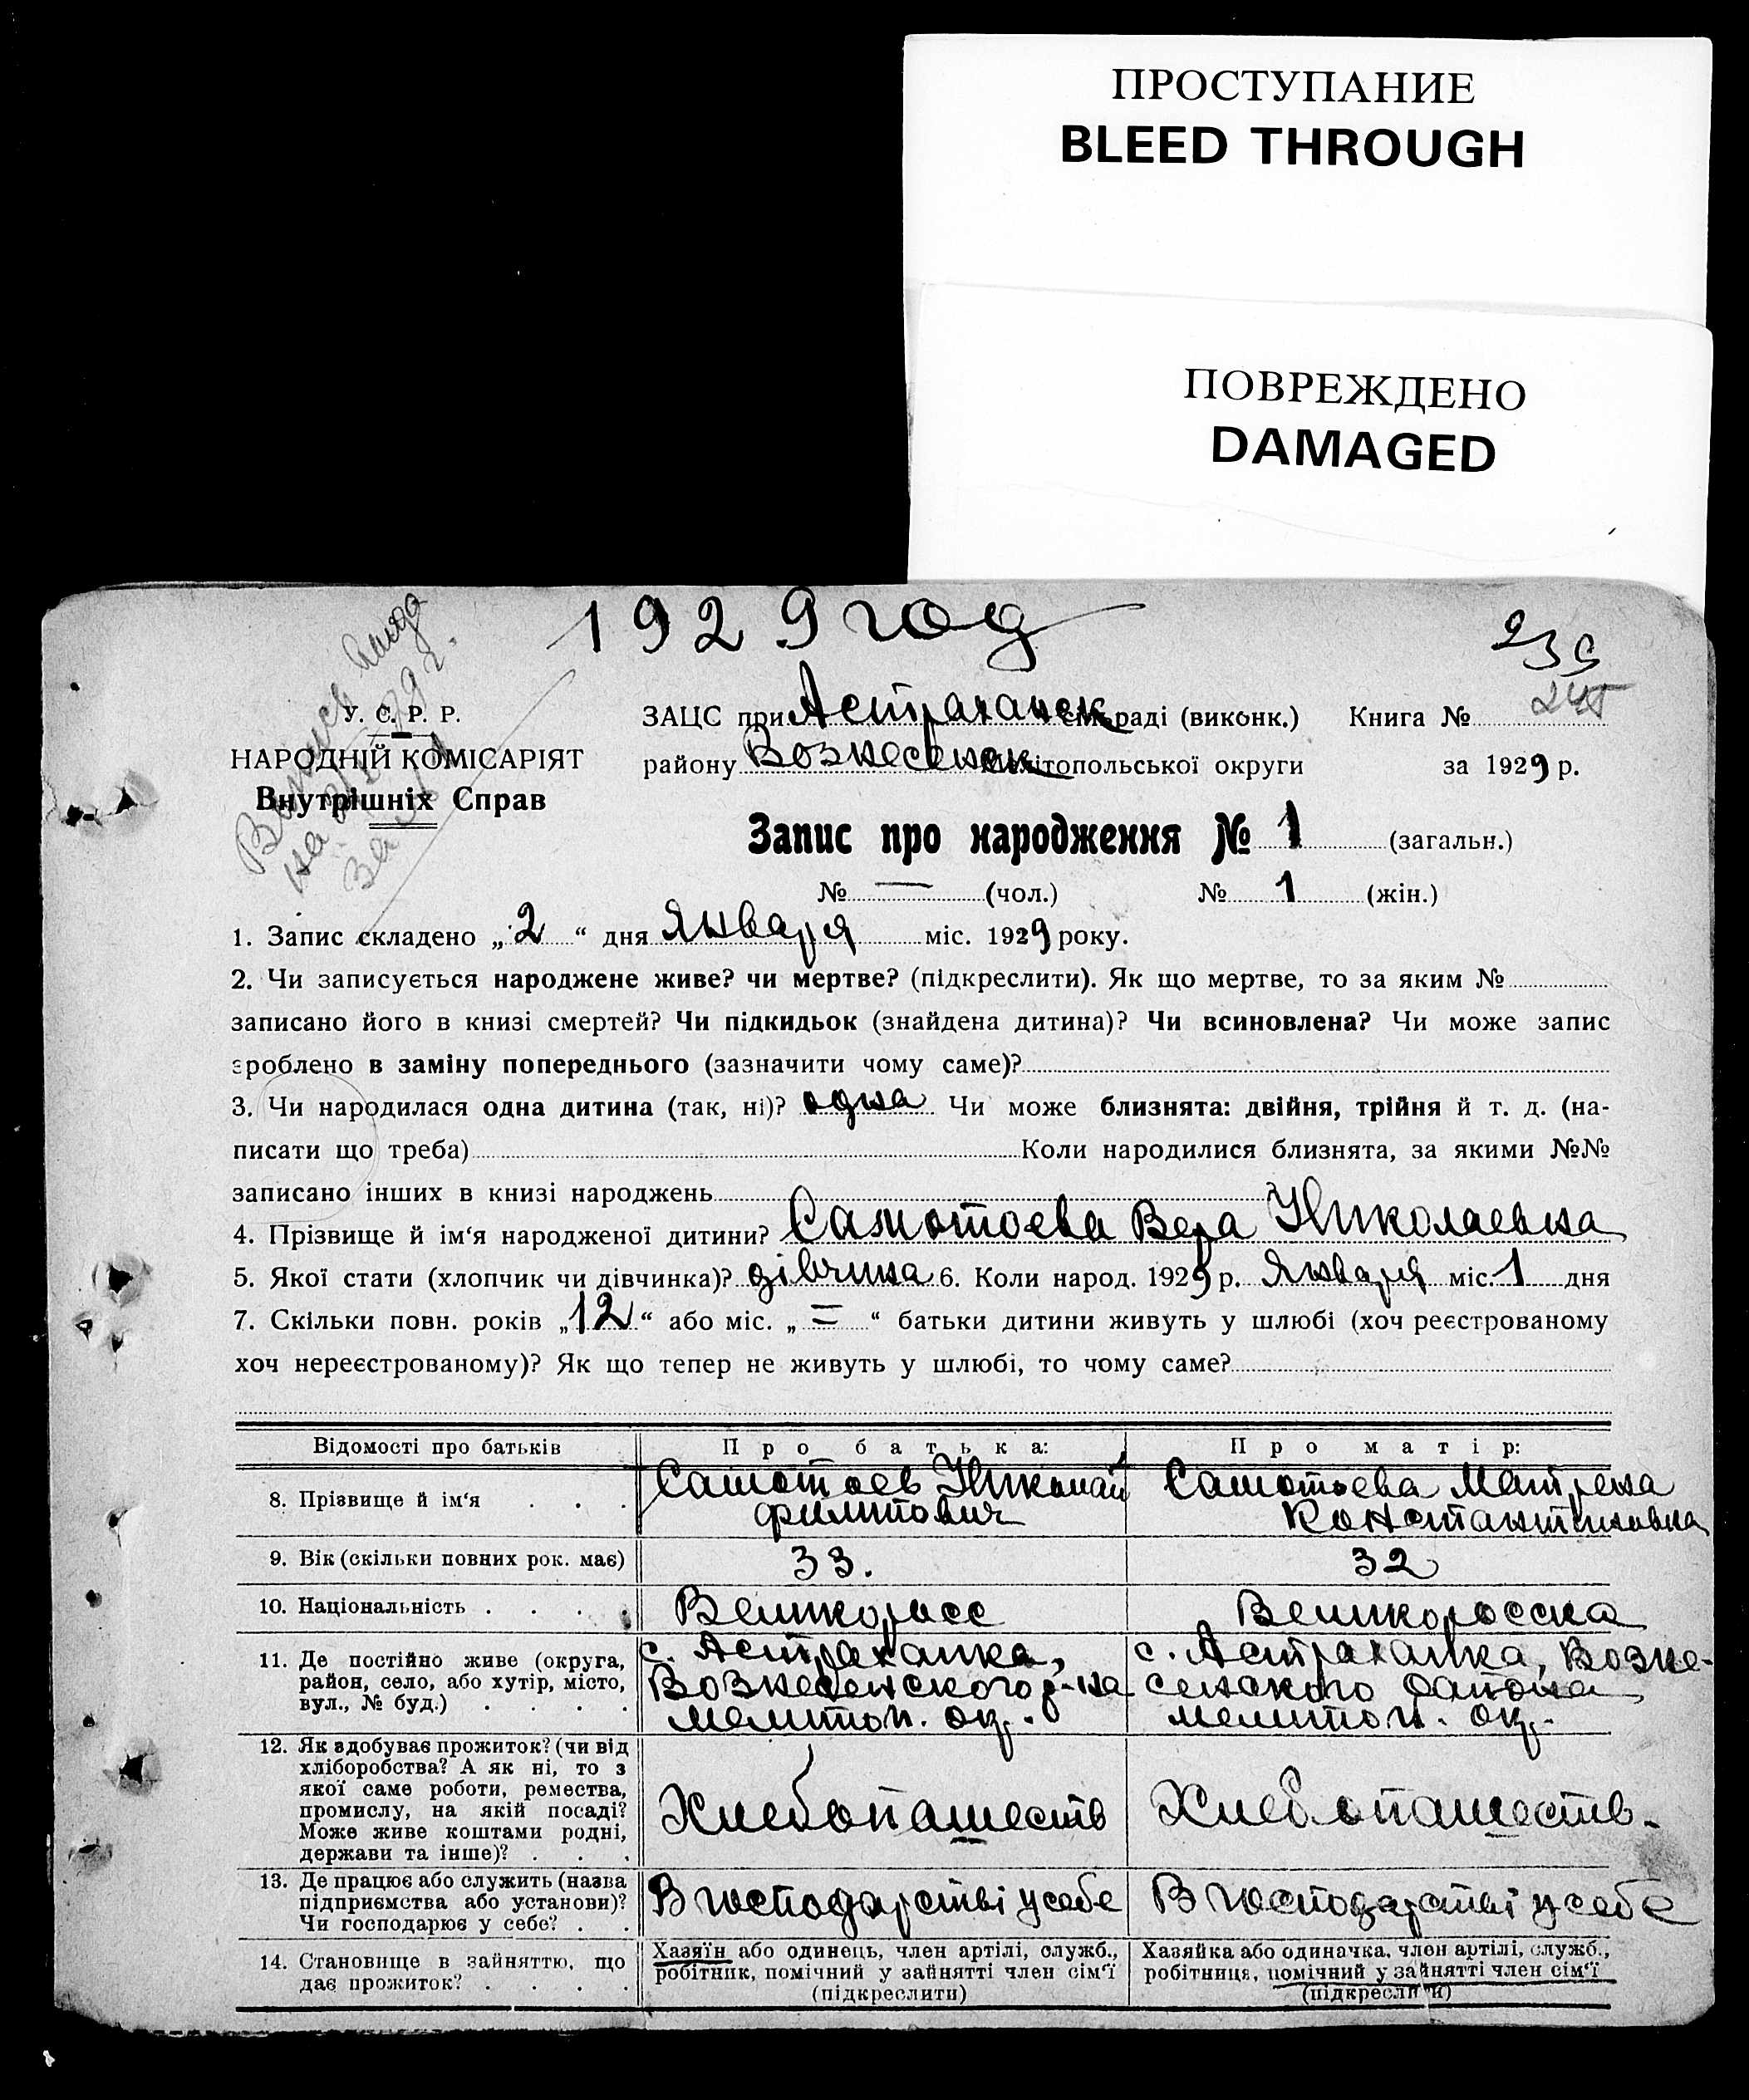 ПРОСТУПАНИЕ
BLEED THROUGH
ПОВРЕЖДЕНО
DAMAGED
1929 год
239
У. С. Р. Р.
НАРОДНІЙ КОМІСАРІЯТ
Внутрішніх Справ
ЗАЦС при Астраханск сільраді (виконк.) Книга №
району Вознесенск Мелітопольської округи за 1929 р.
Запис про народження № 1 (загальн.)
№ — (чол.) № 1 (жін.)
1. Запис складено „2“ дня Января міс. 1929 року.
2. Чи записується народжене живе? чи мертве? (підкреслити). Як що мертве, то за яким №
записано його в книзі смертей? Чи підкидьок (знайдена дитина)? Чи всиновлена? Чи може запис
зроблено в заміну попереднього (зазначити чому саме)?
3. Чи народилася одна дитина (так, ні)? одна Чи може близнята: двійня, трійня й т. д. (на-
писати що треба) Коли народилися близнята, за якими №№
записано інших в книзі народжень
4. Прізвище й ім‘я народженої дитини? Самотоева Вера Николаевна
5. Якої стати (хлопчик чи дівчинка)? дівчина 6. Коли народ. 1929 р. Января міс. 1 дня
7. Скільки повн. років „12“ або міс. „=“ батьки дитини живуть у шлюбі (хоч реєстрованому
хоч нереєстрованому)? Як що тепер не живуть у шлюбі, то чому саме?
Відомості про батьків Про батька: Про матір:
8. Прізвище й ім‘я . . . Самотоев Николай Самотоева Матрена
Филипович Константиновна
9. Вік (скільки повних рок. має) 33. 32
10. Національність . . . . Великоросс Великоросска
11. Де постійно живе (округа, с. Астраханка, с. Астраханка, Возне-
район, село, або хутір, місто, Вознесенского р-на сенского района
вул., № буд.) . . . . Мелитоп. окр. Мелитоп. окр.
12. Як здобуває прожиток? (чи від
хліборобства? А як ні, то з
якої саме роботи, ремества,
промислу, на якій посаді? Хлебопашеств Хлебопашеств.
Може живе коштами родні,
держави та інше)? . . .
13. Де працює або служить (назва
підприємства або установи)? В господарстві у себе В господарстві у себе
Чи господарює у себе? . .
14. Становище в зайняттю, що Хазяїн або одинець, член артілі, служб., Хазяйка або одиначка, член артілі, служб.,
дає прожиток? . . . . робітник, помічний у зайнятті член сім‘ї робітниця, помічний у зайнятті член сім‘ї
(підкреслити) (підкреслити)